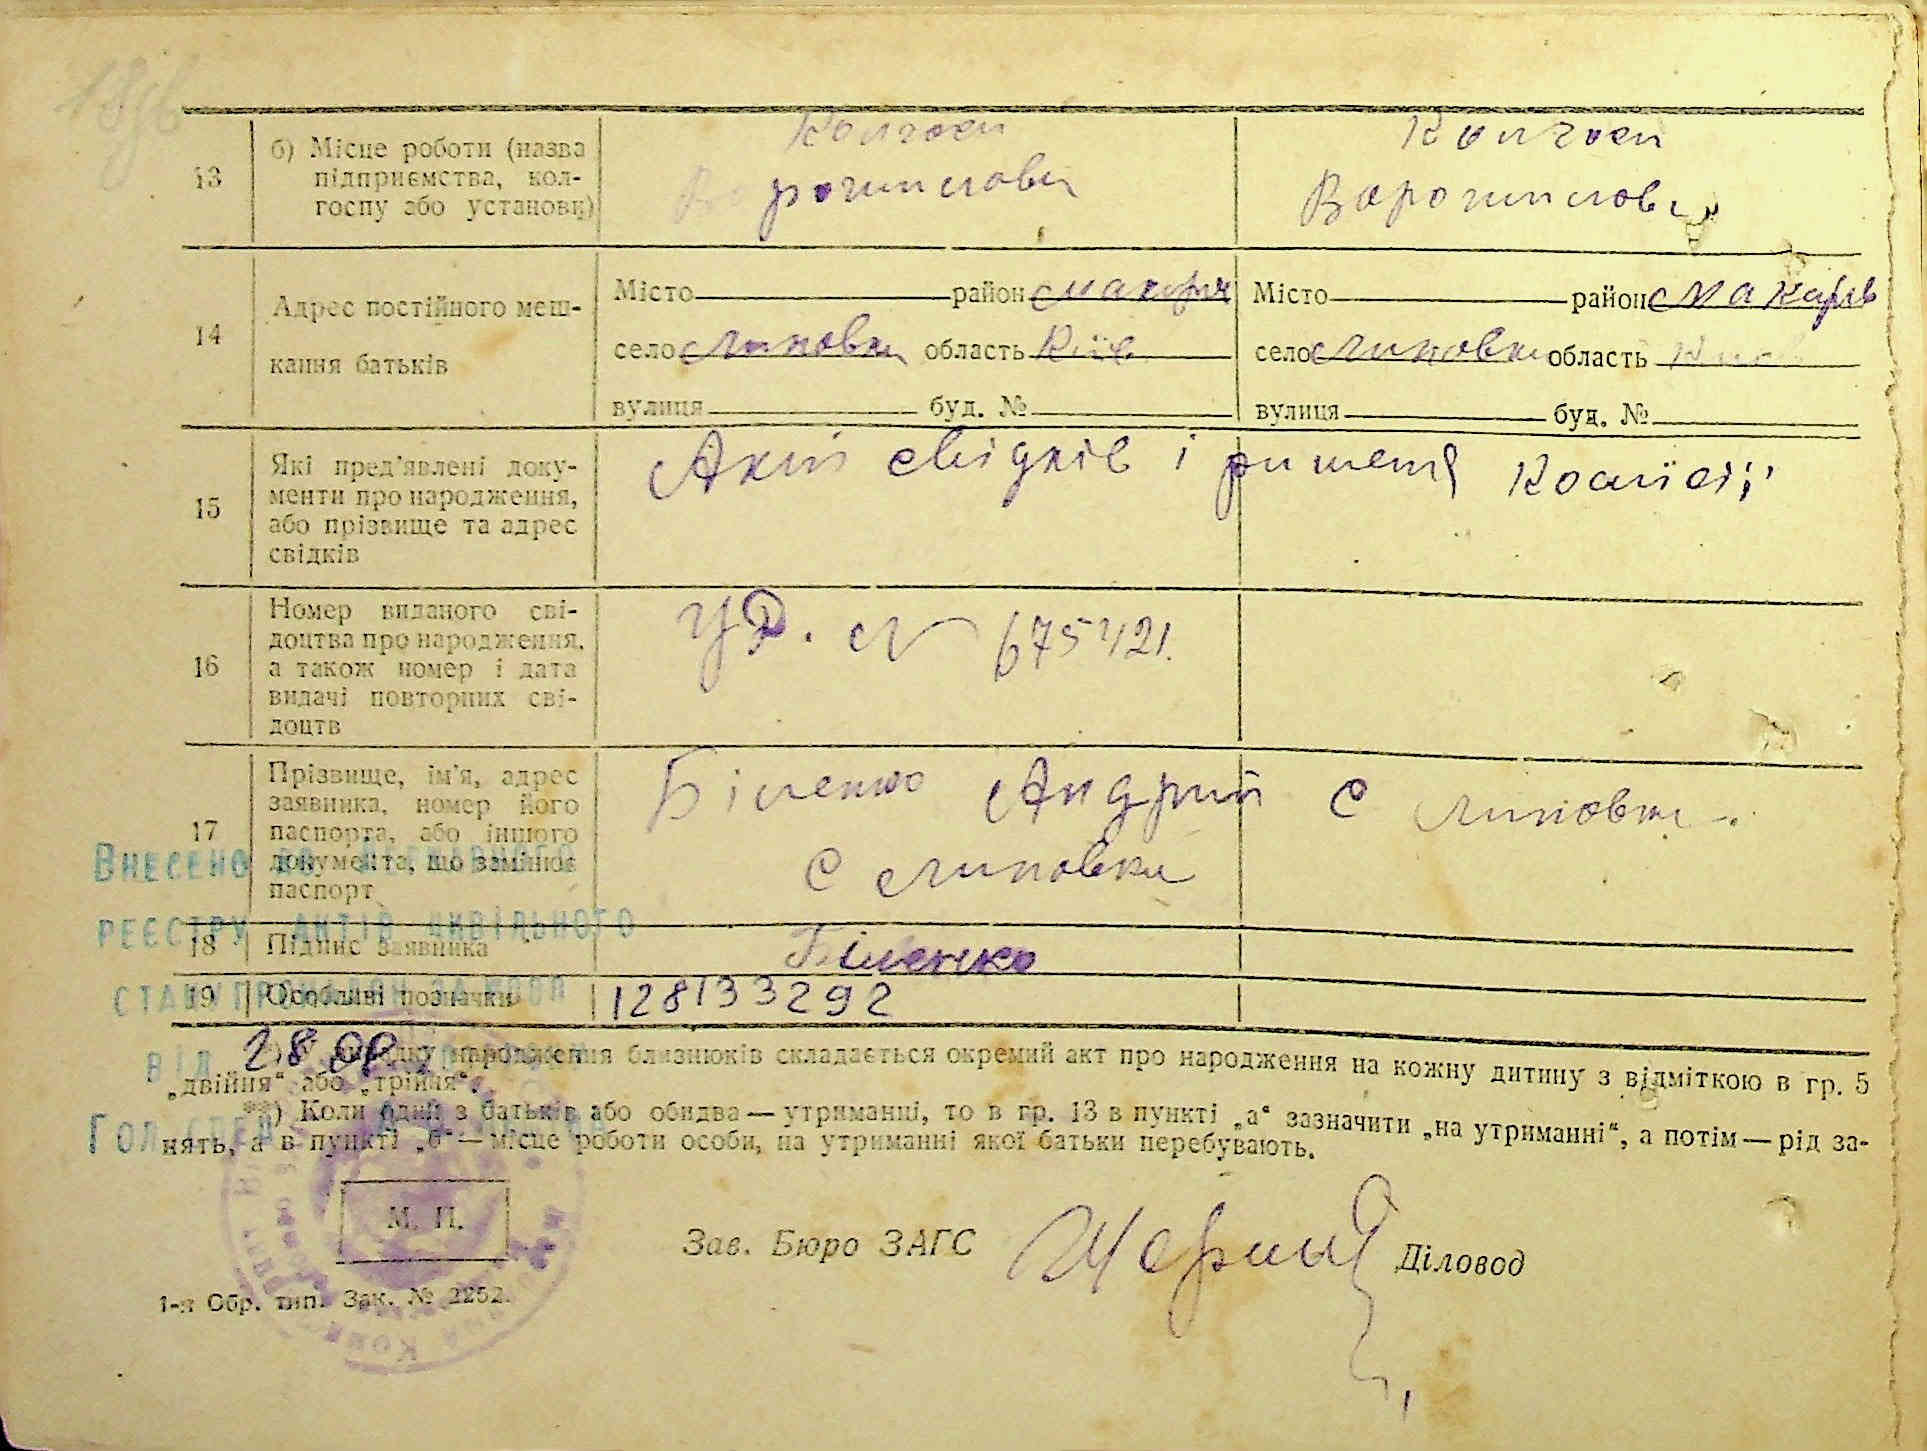 13
б) Місце роботи (назва
підприємства, кол-
госпу або установи)
Колгосп
Ворошилова
Колгосп
Ворошилова
14
Адрес постійного меш-
кання батьків
Місто район Макарів
село Липовка область Київ
вулиця буд. №
Місто район Макарів
село Липовка область Київ
вулиця буд. №
15
Які пред'явлені доку-
менти про народження,
або прізвище та адрес
свідків
Акт свідків і комісії
16
Номер виданого сві-
доцтва про народження,
а також номер і дата
видачі повторних сві-
доцтв
УР. N 675421.
17
Прізвище, ім'я, адрес
заявника, номер його
паспорта, або іншого
документа, що замінює
паспорт
Біленко Андрій с Липовка.
с Липовка
18 Підпис заявника
Біленко
19 Особливі позначки
128133292
Внесено до Державного
реєстру актів цивільного
стану громадян за №
від 28.09
Гол. спец.
*) У випадку народження близнюків складається окремий акт про народження на кожну дитину з відміткою в гр. 5
„двійня“ або „трійня“.
**) Коли один з батьків або обидва — утриманці, то в гр. 13 в пункті „а“ зазначити „на утриманні“, а потім — рід за-
нять, а в пункті „б“ — місце роботи особи, на утриманні якої батьки перебувають.
М. П.
Зав. Бюро ЗАГС
Діловод
1-я Обр. тип. Зак. № 2252.